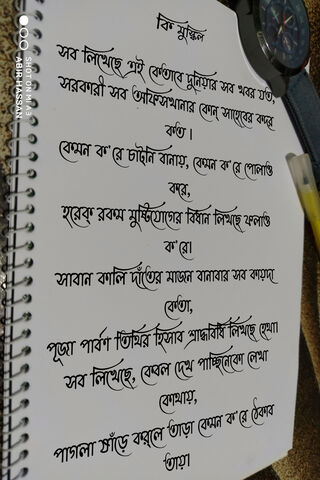 কি মুস্কিল
সব লিখেছে এই কেতাবে দুনিয়ার সব খবর যত,
সরকারী সব অফিসখানার কোন্ সাহেবের কদর
কত ।
কেমন ক'রে চাটনি বানায়, কেমন ক'রে পোলাও
করে,
হরেক্ রকম মুষ্টিযোগের বিধান লিখছে ফলাও
ক'রে।
সাবান কালি দাঁতের মাজন বানাবার সব কায়দা
কেতা,
পূজা পার্বণ তিথির হিসাব শ্রাদ্ধবিধি লিখছে হেথা।
সব লিখেছে, কেবল দেখ পাচ্ছিনেকো লেখা
কোথায়,
পাগলা ষাঁড়ে কর্‌লে তাড়া কেমন ক'রে ঠেকাব
তায়।
SHOT ON MI 9 LITE
ABIR HASSAN